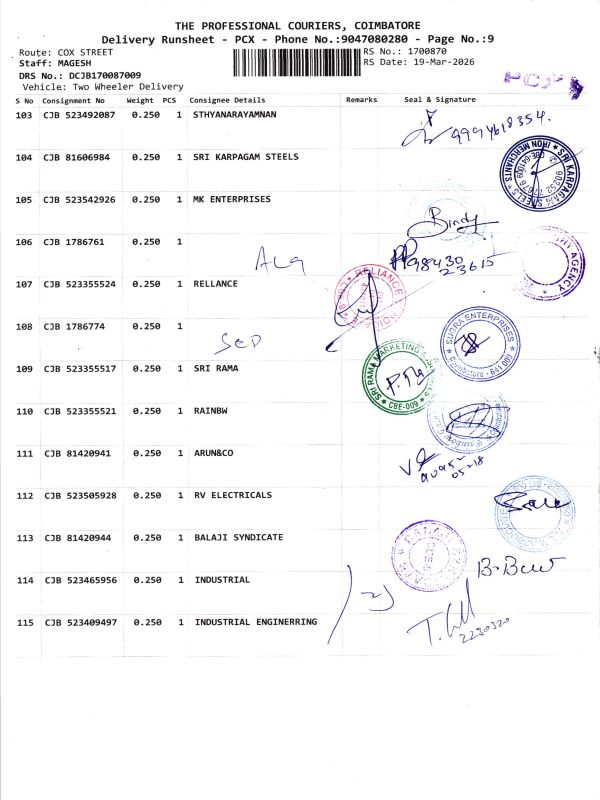 THE PROFESSIONAL COURIERS, COIMBATORE
Delivery Runsheet - PCX - Phone No.:9047080280 - Page No.:9
Route: COX STREET
RS No.: 1700870
Staff: MAGESH
RS Date: 19-Mar-2026
DRS No.: DCJB170087009
Vehicle: Two Wheeler Delivery
PCJB
S No Consignment No Weight PCS Consignee Details Remarks Seal & Signature
103 CJB 523492087 0.250 1 STHYANARAYAMNAN
9994618354.
104 CJB 81606984 0.250 1 SRI KARPAGAM STEELS
SRI KARPAGAM STEELS
IRON MERCHANTS
105 CJB 523542926 0.250 1 MK ENTERPRISES
106 CJB 1786761 0.250 1
98430
23615
AGENCY
107 CJB 523355524 0.250 1 RELLANCE
RELIANCE
108 CJB 1786774 0.250 1
SUGRA ENTERPRISES
Coimbatore - 641 009
109 CJB 523355517 0.250 1 SRI RAMA
SRI RAMA MARKETING
CBE-009
110 CJB 523355521 0.250 1 RAINBW
111 CJB 81420941 0.250 1 ARUN&CO
90952
05718
112 CJB 523505928 0.250 1 RV ELECTRICALS
113 CJB 81420944 0.250 1 BALAJI SYNDICATE
114 CJB 523465956 0.250 1 INDUSTRIAL
115 CJB 523409497 0.250 1 INDUSTRIAL ENGINERRING
2230320